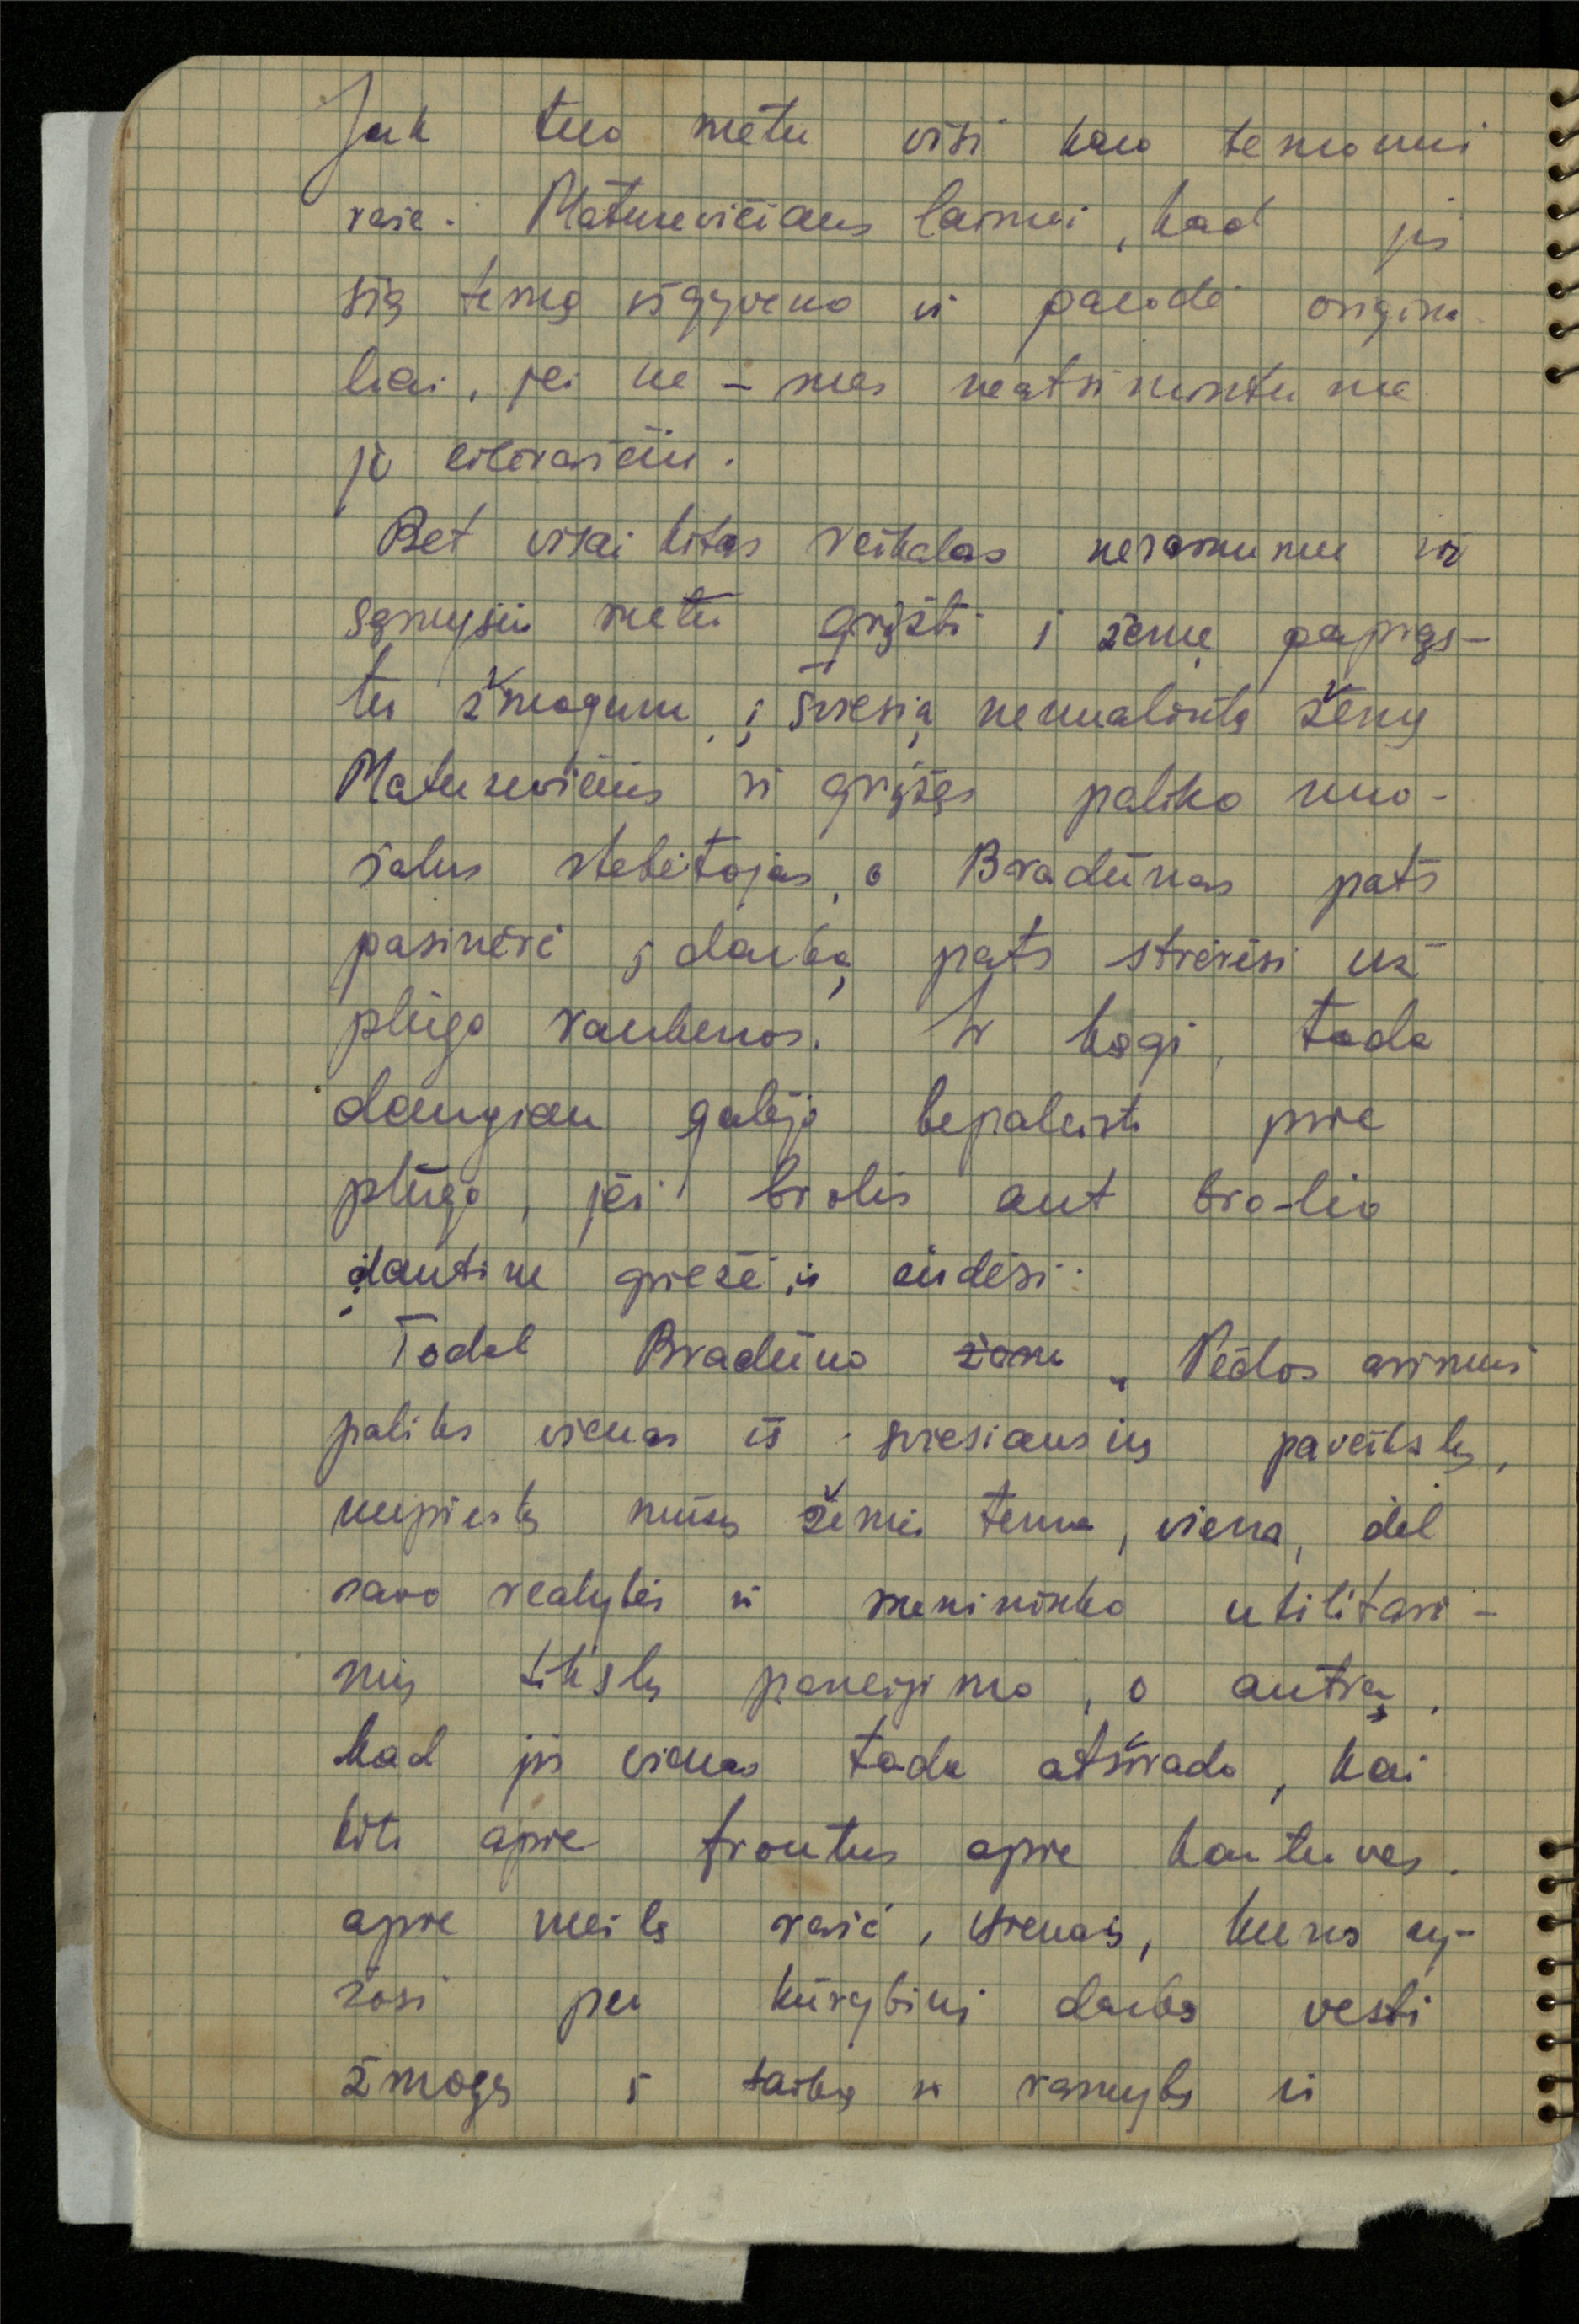 Juk tuo metu visi karo temomis
rašė. Matuzevičiaus laimei, kad jis
šią temą išgyveno ir parodė origina-
liai, jei ne – mes neatsimintume
jo eilėraščių.
Bet visai kitas reikalas neramumu ir
sąmyšiu metu grįžti į žemę papras-
tu žmogum, į šviesią nemualintą žemę
Matuzevičius ir grįžęs paliko nuo-
šalus stebėtojas, o Bradūnas pats
pasinėrė į darbą, pats stvėrėsi už
plūgo rankenos. Ir kogi, tada
daugiau galėjo bepaleisti prie
plūgo, jei brolis ant brolio
dantimi griežė ir ėidėsi.
Todėl Bradūno žem „Pėdos arimuos
paliks vienas iš šviesiausių paveikslų,
nupieštų mūsų žemės tema, viena, dėl
savo realybės ir menininko utilitari-
nių tikslų paneigimo, o antra,
kad jis vienas tada atsirado, kai
kiti apie frontus apie kautuves
apie meilę rašė, vienas, kuris ry-
žosi per kūrybinį darbą vesti
žmogų į taiką ir ramybę ir